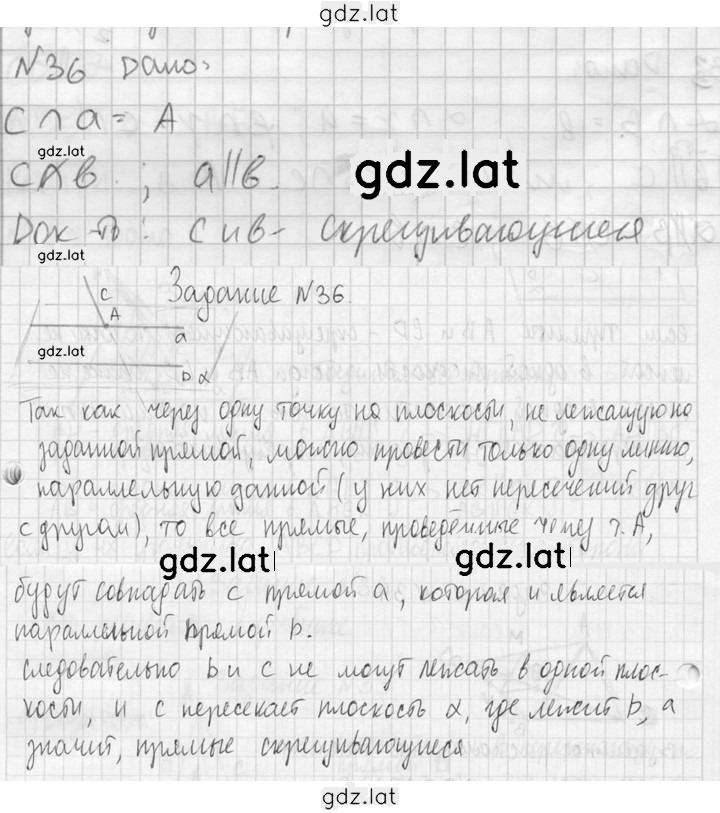 gdz.lat
N36 Дано:
C ∩ a = A
gdz.lat
C∦b ; a||b
gdz.lat
Док-ть: C и b - скрещивающиеся
gdz.lat
Задание N36.
c
A
a
gdz.lat
b α
Так как через одну точку на плоскости, не лежащую на
заданной прямой, можно провести только одну линию,
параллельную данной (у них нет пересечений друг
с другом), то все прямые, проведённые чему т. А,
gdz.lat gdz.lat
будут совпадать с прямой a, которая и является
параллельной прямой b.
следовательно b и c не могут лежать в одной плос-
кости, и c пересекает плоскость α, где лежит b, a
значит, прямые скрещивающиеся
gdz.lat